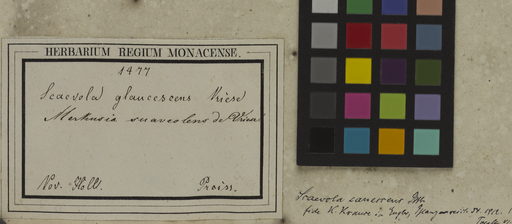 HERBARIUM REGIUM MONACENSE.
1477
Scaevola glaucescens Vriese
Merkusia suaveolens de Vriese
Nov. Holl. Preiss.
Scaevola canescens Bth
fide K. Krause in Engler, 54 1912